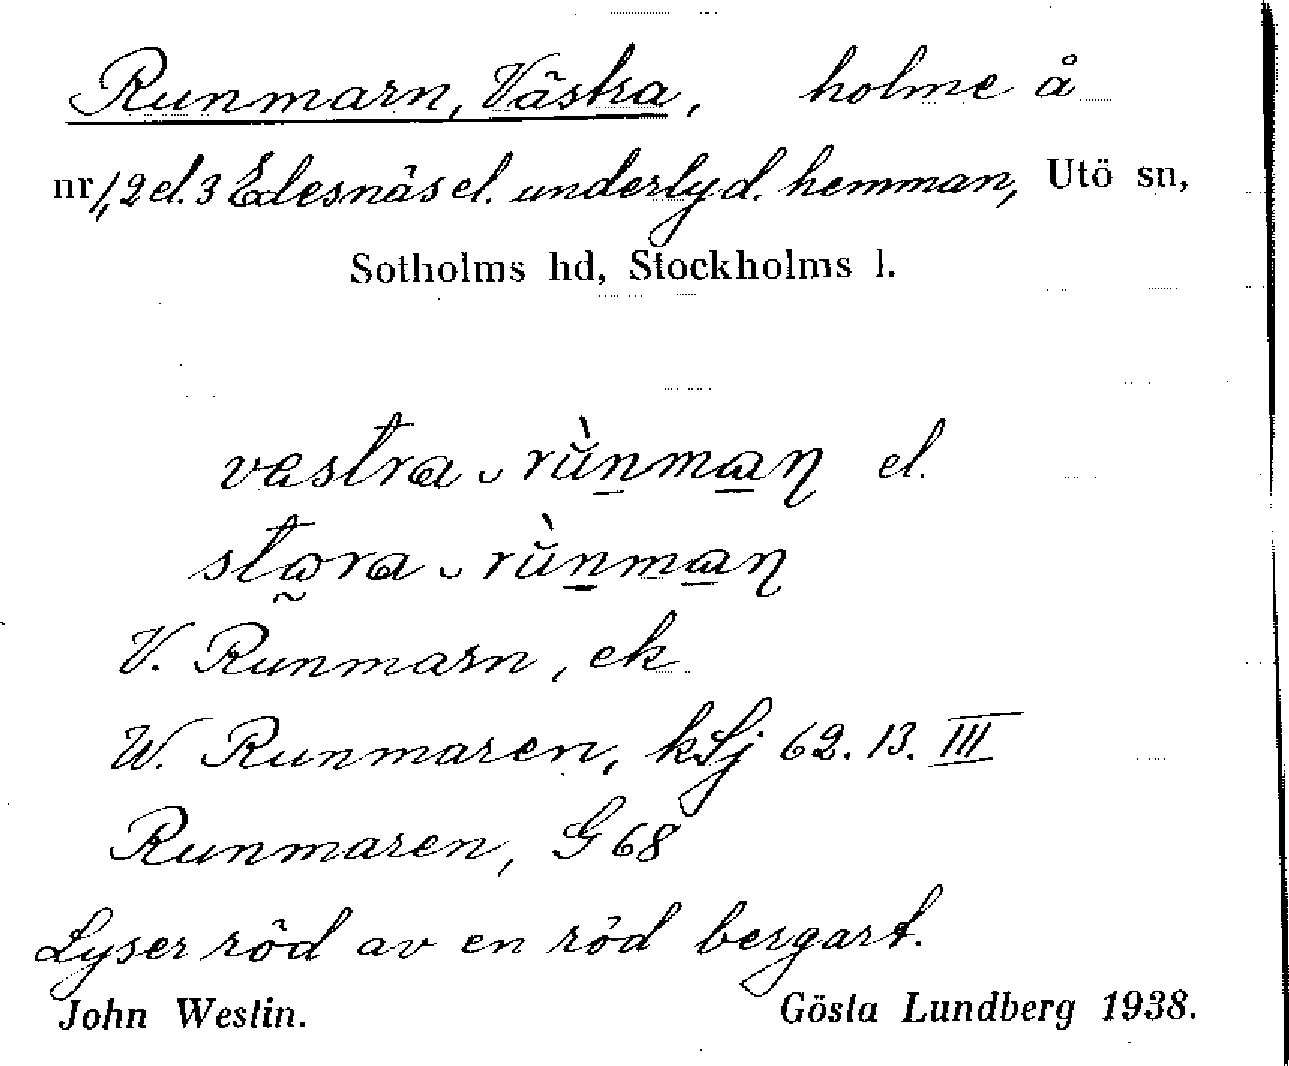 Runmarn, Västra, holme å
nr 1, 2 el. 3 Edesnäs el. underlyd. hemman, Utö sn,
Sotholms hd, Stockholms l.
västra ᴗ rùnman el.
stora ᴗ rùnman
V. Runmarn, ek
W. Runmaren, kSj 62. 13. III
Runmaren, G 68
Lyser röd av en röd bergart.
John Westin. Gösta Lundberg 1938.